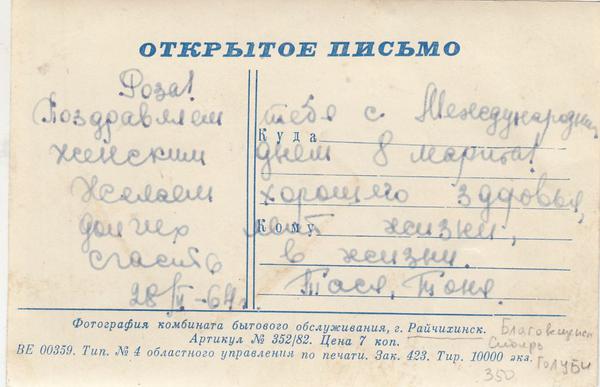 ОТКРЫТОЕ ПИСЬМО
Роза!
Поздравляем тебя с Международным
Куда
женским днем 8 марта!
Желаем хорошего здоровья,
Кому
долгих лет жизни,
счастья в жизни.
28/II-64 г. Тася, Тоня.
Фотография комбината бытового обслуживания, г. Райчихинск.
Артикул № 352/82. Цена 7 коп.
ВЕ 00359. Тип. № 4 областного управления по печати. Зак. 423. Тир. 10000 экз.
Благовещенск
Сибирь
ГОЛУБИ
350